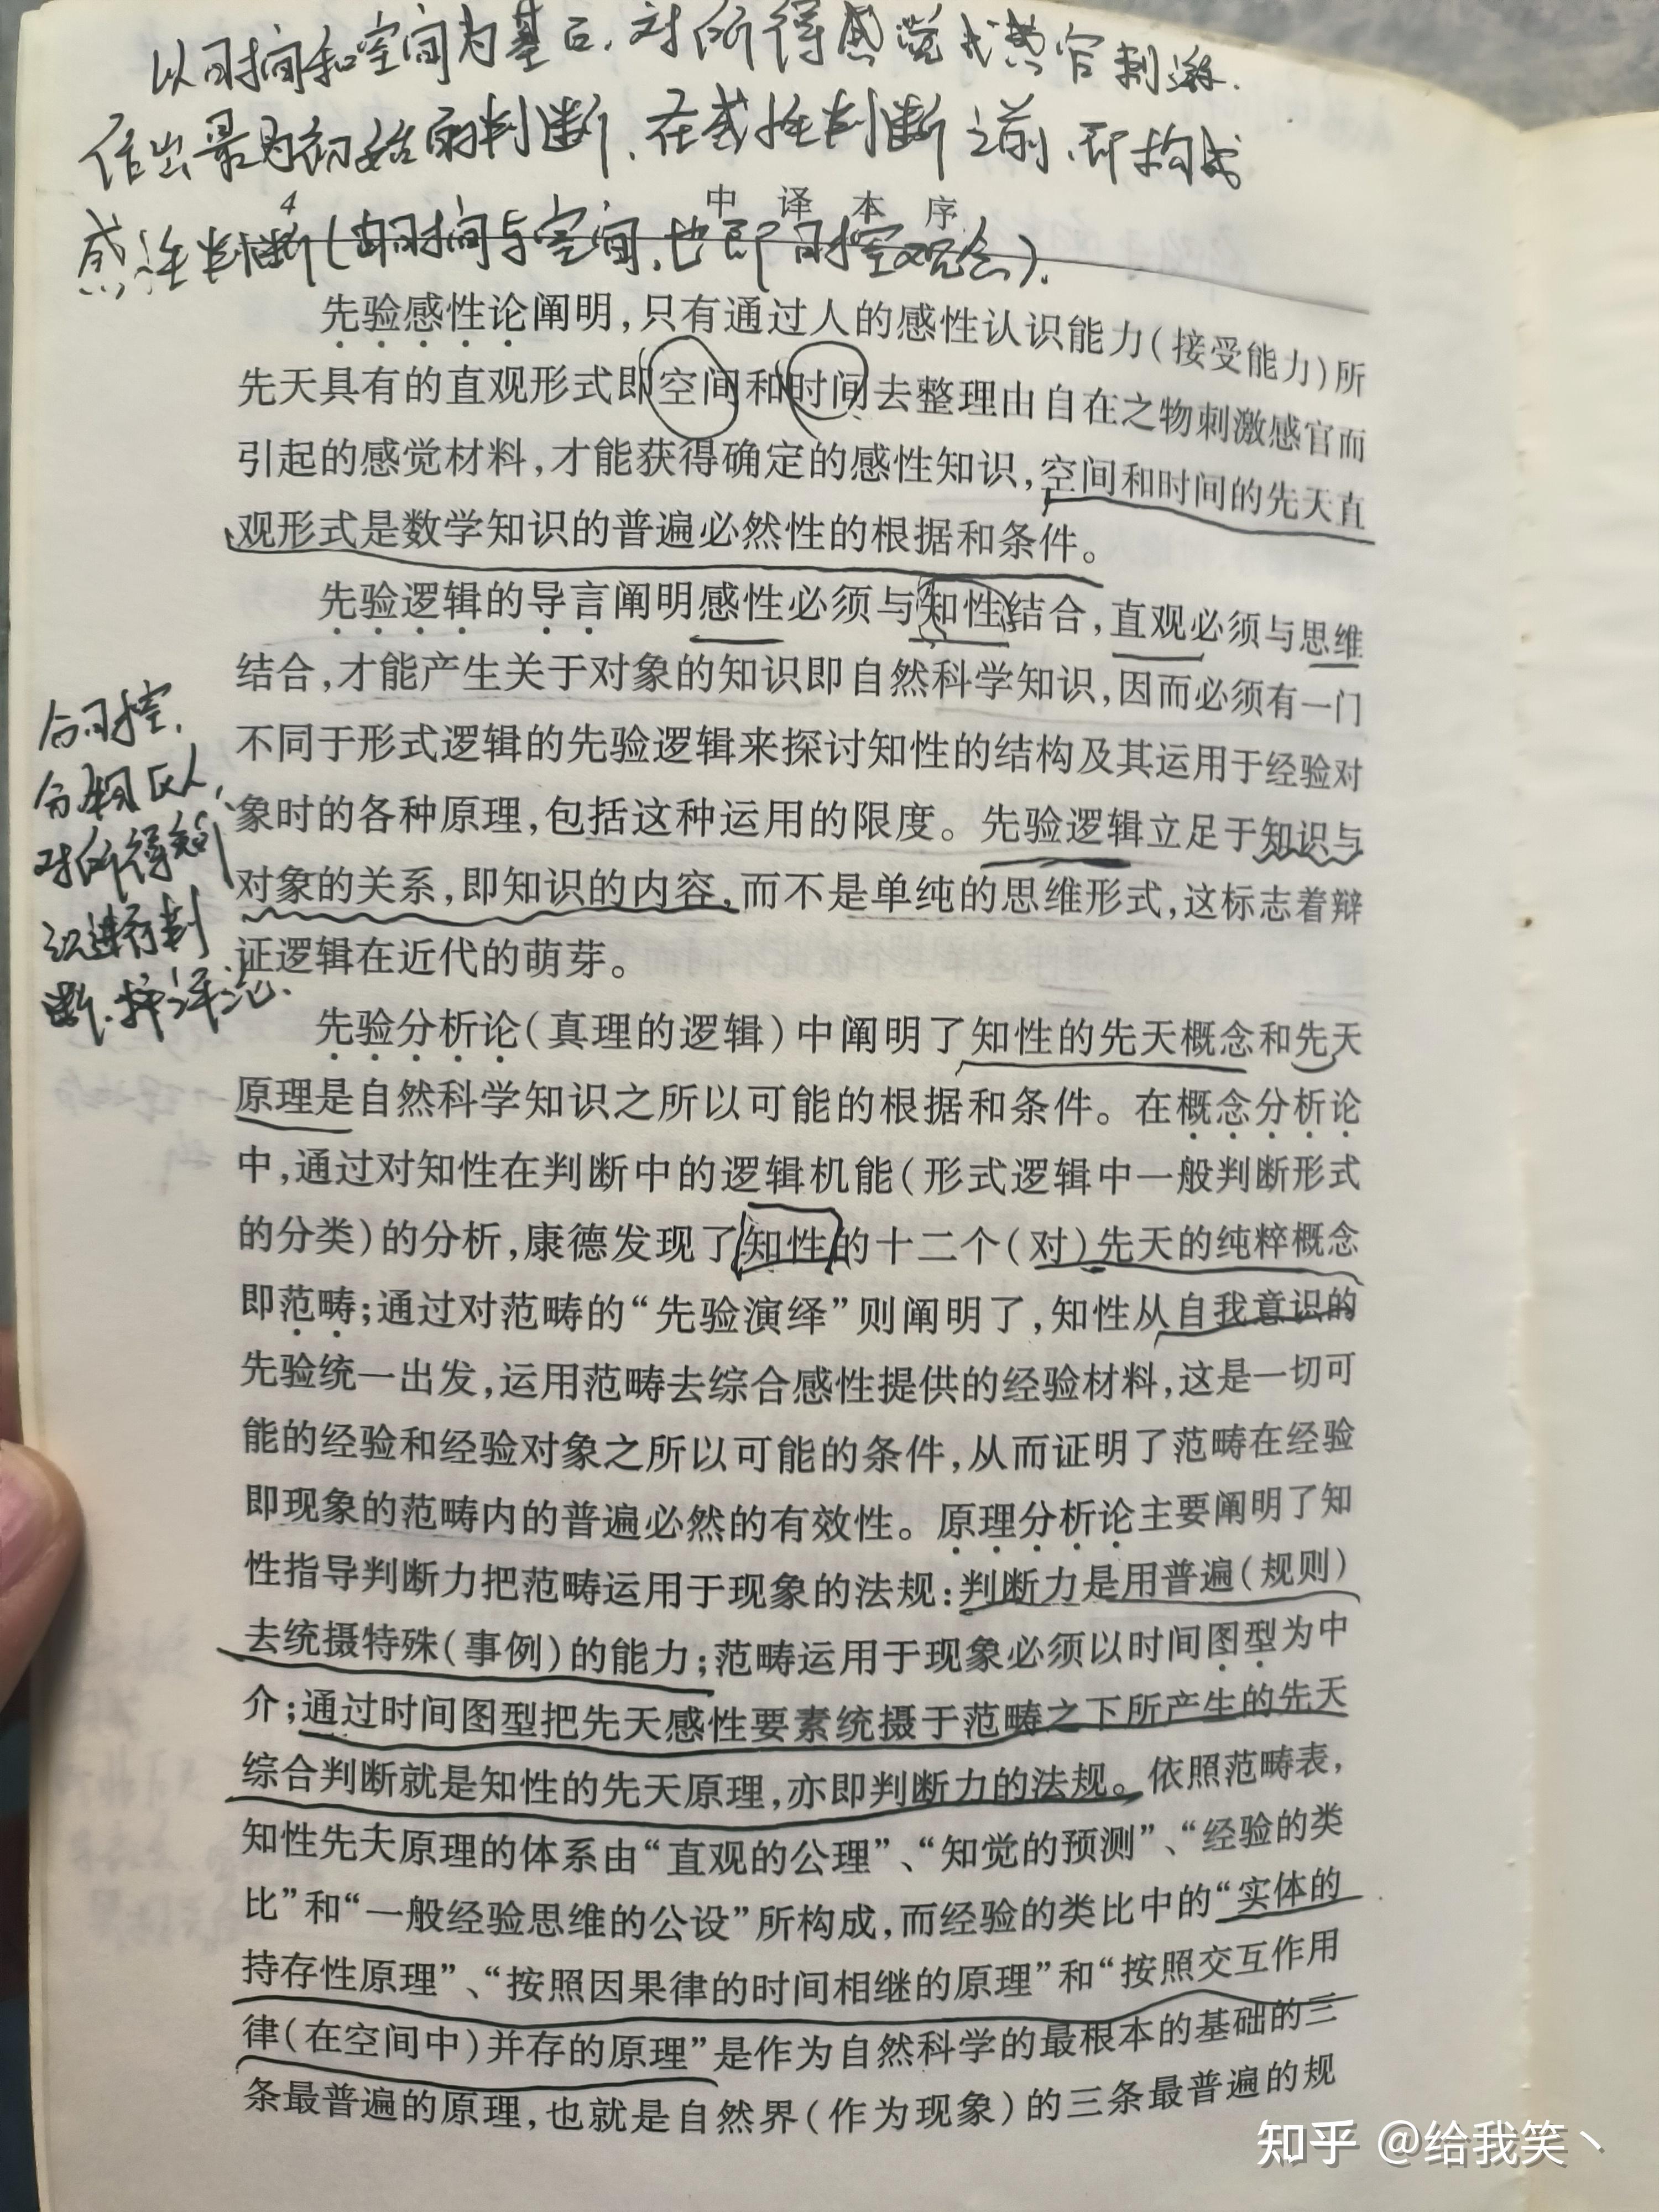 以时间和空间为基石，对所得感觉或感官刺激.
作出最为初始的判断，在或性判断之前，即构成
4
中译本序
感性判断(由时间与空间，也即时空观念).
先验感性论阐明，只有通过人的感性认识能力(接受能力)所
先天具有的直观形式即空间和时间去整理由自在之物刺激感官而
引起的感觉材料，才能获得确定的感性知识，空间和时间的先天直
观形式是数学知识的普遍必然性的根据和条件。
先验逻辑的导言阐明感性必须与知性结合，直观必须与思维
结合，才能产生关于对象的知识即自然科学知识，因而必须有一门
不同于形式逻辑的先验逻辑来探讨知性的结构及其运用于经验对
象时的各种原理，包括这种运用的限度。先验逻辑立足于知识与
对象的关系，即知识的内容，而不是单纯的思维形式，这标志着辩
证逻辑在近代的萌芽。
合时空.
对所得知
识进行判
断.
先验分析论(真理的逻辑)中阐明了知性的先天概念和先天
原理是自然科学知识之所以可能的根据和条件。在概念分析论
中，通过对知性在判断中的逻辑机能(形式逻辑中一般判断形式
的分类)的分析，康德发现了知性的十二个(对)先天的纯粹概念
即范畴；通过对范畴的“先验演绎”则阐明了，知性从自我意识的
先验统一出发，运用范畴去综合感性提供的经验材料，这是一切可
能的经验和经验对象之所以可能的条件，从而证明了范畴在经验
即现象的范畴内的普遍必然的有效性。原理分析论主要阐明了知
性指导判断力把范畴运用于现象的法规：判断力是用普遍(规则)
去统摄特殊(事例)的能力；范畴运用于现象必须以时间图型为中
介；通过时间图型把先天感性要素统摄于范畴之下所产生的先天
综合判断就是知性的先天原理，亦即判断力的法规。依照范畴表，
知性先天原理的体系由“直观的公理”、“知觉的预测”、“经验的类
比”和“一般经验思维的公设”所构成，而经验的类比中的“实体的
持存性原理”、“按照因果律的时间相继的原理”和“按照交互作用
律(在空间中)并存的原理”是作为自然科学的最根本的基础的三
条最普遍的原理，也就是自然界(作为现象)的三条最普遍的规
知乎 @给我笑丶